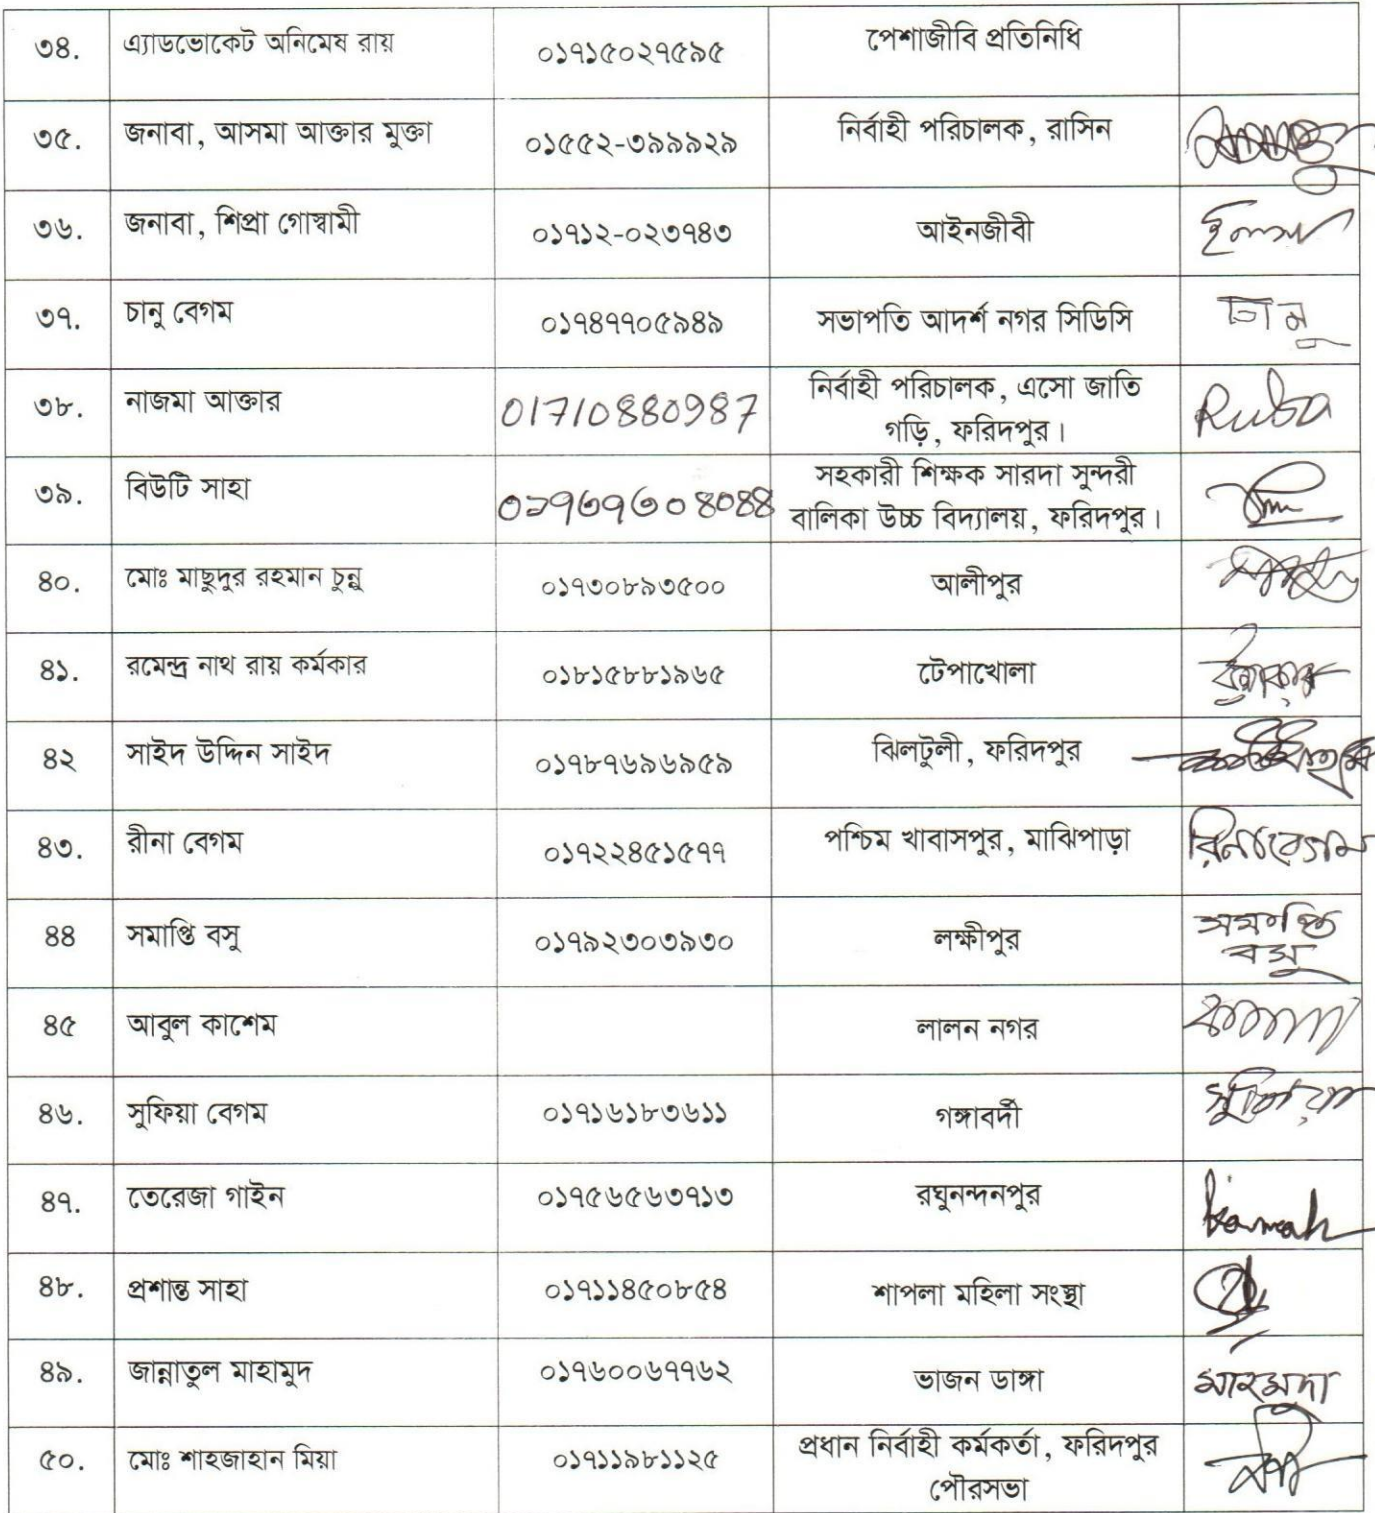 ৩৪. এ্যাডভোকেট অনিমেষ রায় ০১৭১৫০২৭৫৯৫ পেশাজীবি প্রতিনিধি
৩৫. জনাবা, আসমা আক্তার মুক্তা ০১৫৫২-৩৯৯৯২৯ নির্বাহী পরিচালক, রাসিন
৩৬. জনাবা, শিপ্রা গোস্বামী ০১৭১২-০২৩৭৪৩ আইনজীবী
৩৭. চানু বেগম ০১৭৪৭৭০৫৯৪৯ সভাপতি আদর্শ নগর সিডিসি চানু
৩৮. নাজমা আক্তার 01710880987 নির্বাহী পরিচালক, এসো জাতি
গড়ি, ফরিদপুর। Ruba
৩৯. বিউটি সাহা সহকারী শিক্ষক সারদা সুন্দরী
বালিকা উচ্চ বিদ্যালয়, ফরিদপুর।
৪০. মোঃ মাছুদুর রহমান চুন্নু ০১৭৩০৮৯৩৫০০ আলীপুর
৪১. রমেন্দ্র নাথ রায় কর্মকার ০১৮১৫৮৮১৯৬৫ টেপাখোলা
৪২ সাইদ উদ্দিন সাইদ ০১৭৮৭৬৯৬৯৫৯ ঝিলটুলী, ফরিদপুর
৪৩. রীনা বেগম ০১৭২২৪৫১৫৭৭ পশ্চিম খাবাসপুর, মাঝিপাড়া রিনা বেগম
৪৪ সমাপ্তি বসু ০১৭৯২৩০৩৯৩০ লক্ষীপুর সমাপ্তি
বসু
৪৫ আবুল কাশেম লালন নগর
৪৬. সুফিয়া বেগম ০১৭১৬১৮৩৬১১ গঙ্গাবর্দী সুফিয়া
৪৭. তেরেজা গাইন ০১৭৫৬৫৬৩৭১৩ রঘুনন্দনপুর
৪৮. প্রশান্ত সাহা ০১৭১১৪৫০৮৫৪ শাপলা মহিলা সংস্থা
৪৯. জান্নাতুল মাহামুদ ০১৭৬০০৬৭৭৬২ ভাজন ডাঙ্গা মাহমুদা
৫০. মোঃ শাহজাহান মিয়া ০১৭১১৯৮১১২৫ প্রধান নির্বাহী কর্মকর্তা, ফরিদপুর
পৌরসভা